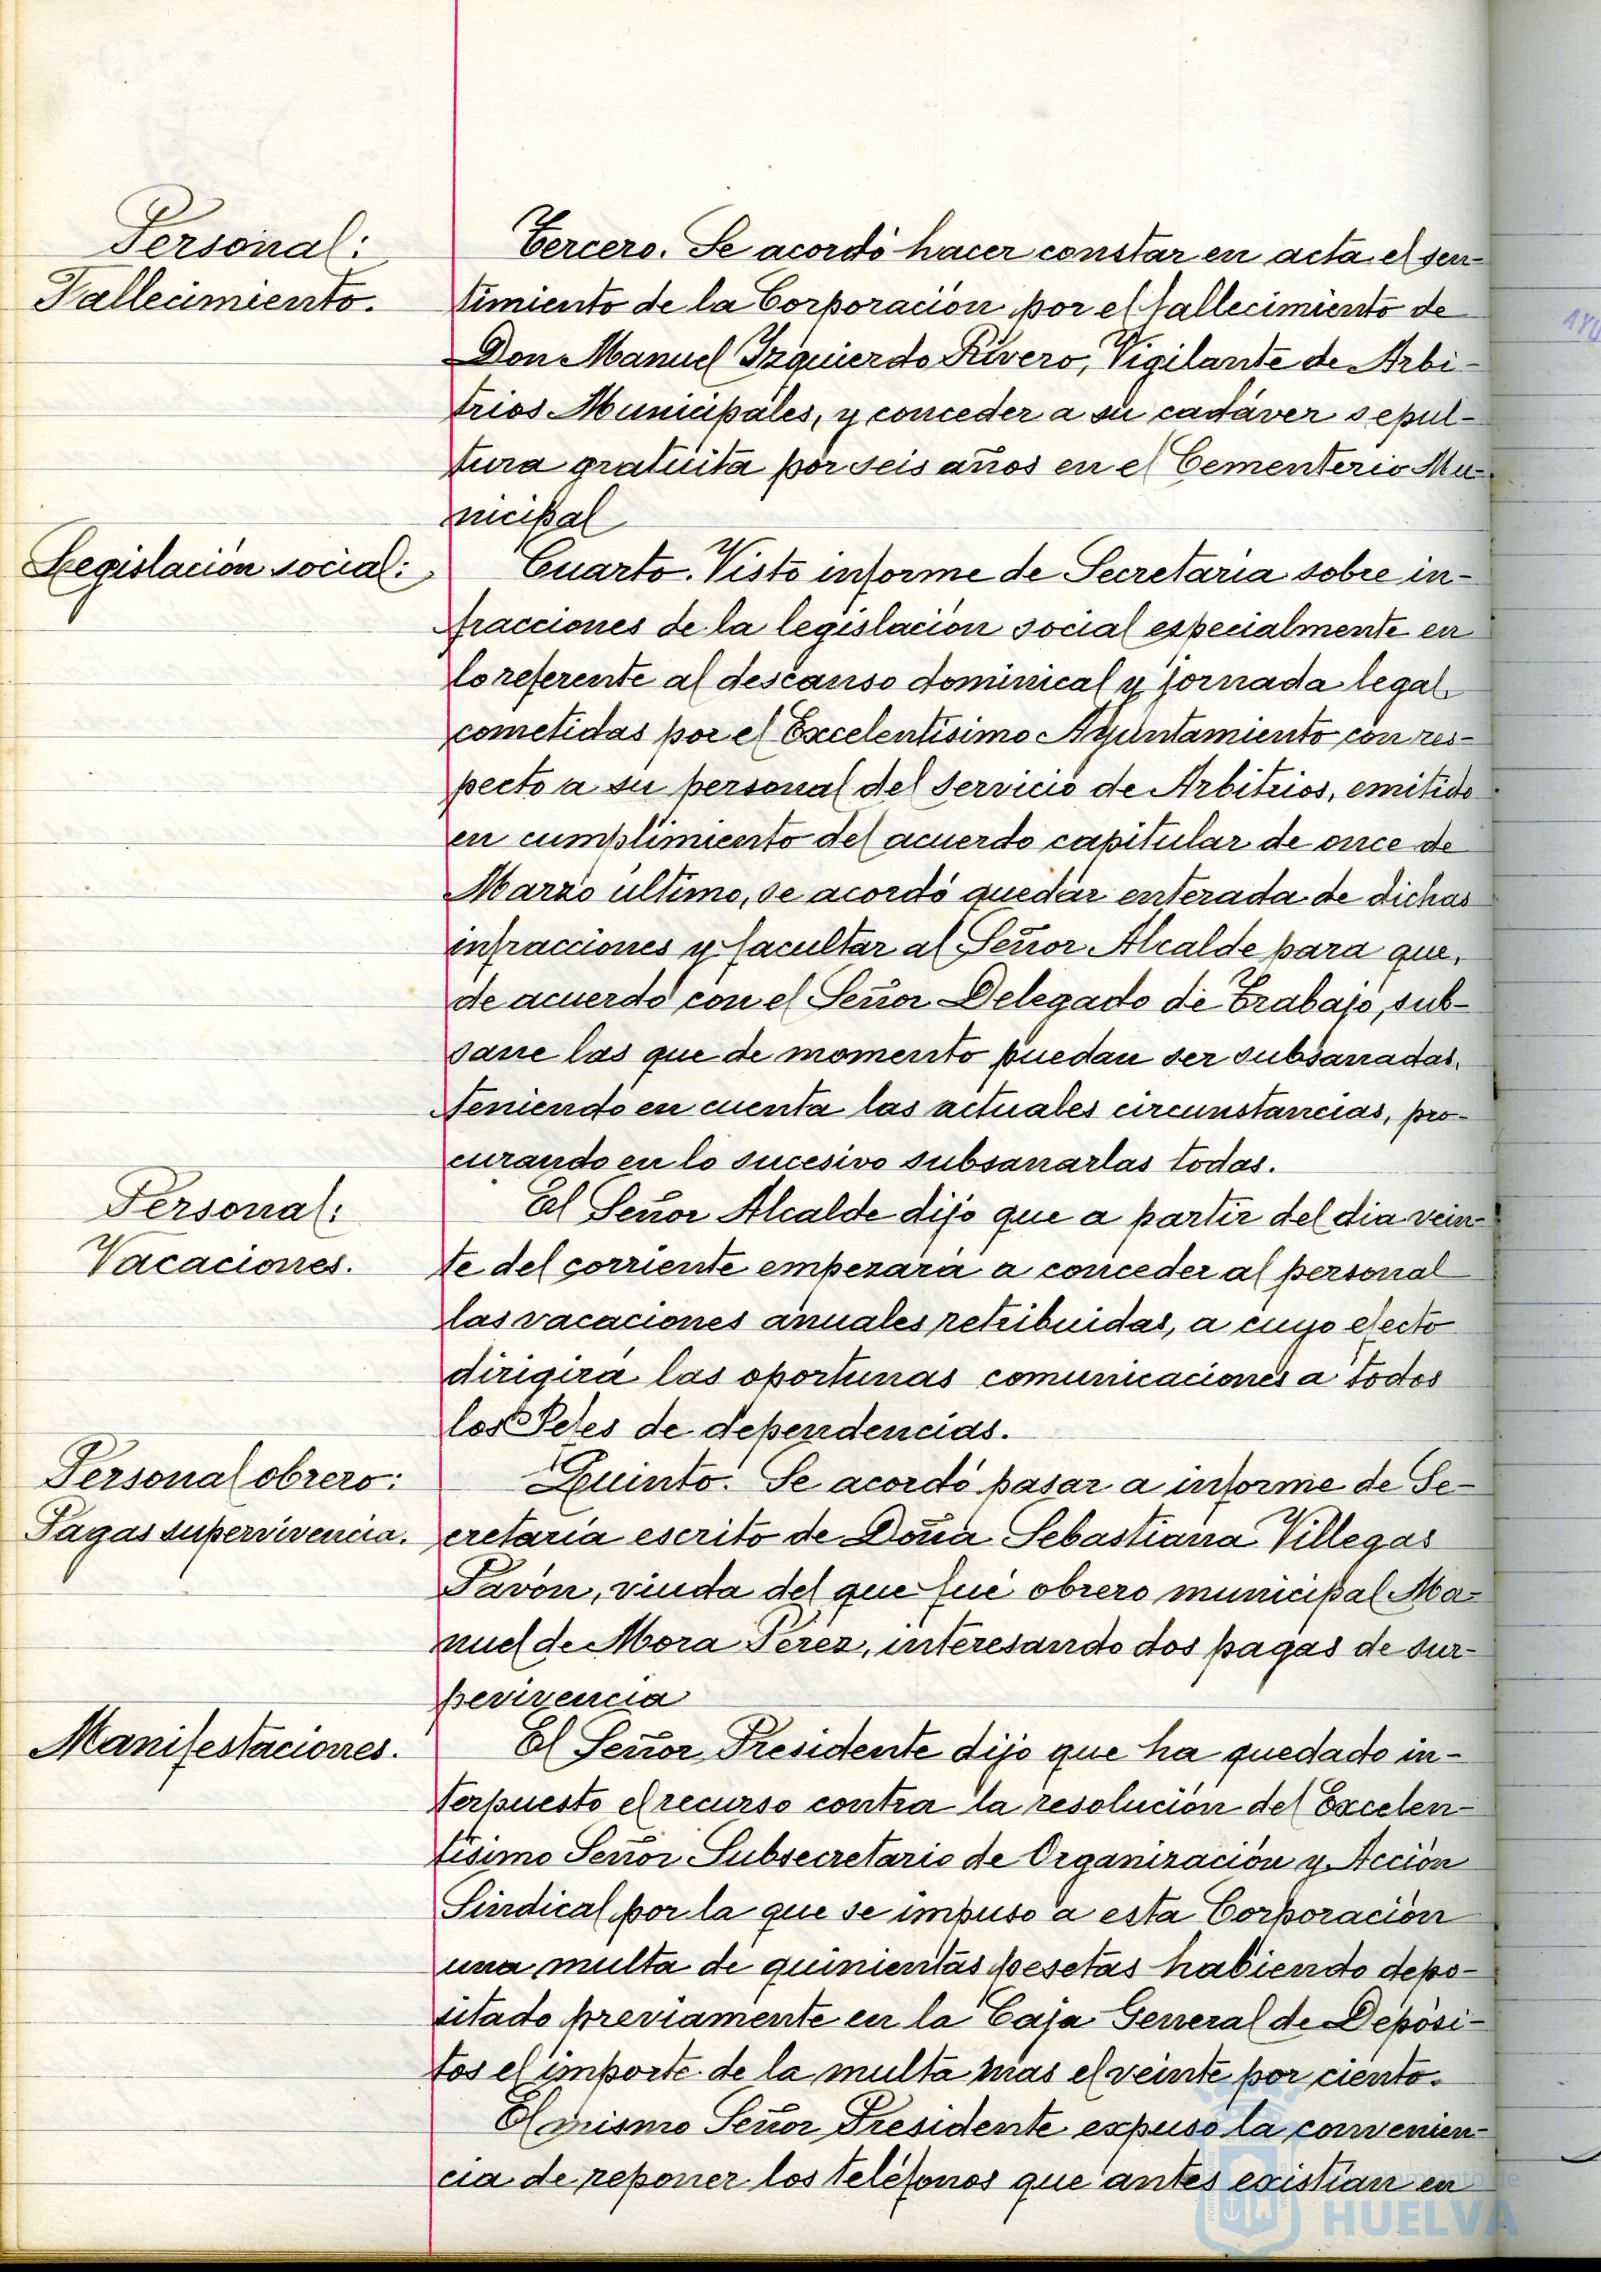 Personal:
Fallecimiento.
Tercero. Se acordó hacer constar en acta el sen-
timiento de la Corporación por el fallecimiento de
Don Manuel Izquierdo Rivero, Vigilante de Arbi-
trios Municipales, y conceder a su cadáver sepul-
tura gratuita por seis años en el Cementerio Mu-
nicipal
Legislación social:
Cuarto. Visto informe de Secretaria sobre in-
fracciones de la legislación social especialmente en
lo referente al descanso dominical y jornada legal
cometidas por el Excelentísimo Ayuntamiento con res-
pecto a su personal del servicio de Arbitrios, emitido
en cumplimiento del acuerdo capitular de once de
Marzo último, se acordó quedar enterada de dichas
infracciones y facultar al Señor Alcalde para que,
de acuerdo con el Señor Delegado de Trabajo, sub-
sane las que de momento puedan ser subsanadas,
teniendo en cuenta las actuales circunstancias, pro-
curando en lo sucesivo subsanarlas todas.
Personal:
Vacaciones.
El Señor Alcalde dijo que a partir del dia vein-
te del corriente empezará a conceder al personal
las vacaciones anuales retribuidas, a cuyo efecto
dirigirá las oportunas comunicaciones a todos
los Jefes de dependencias.
Personal obrero:
Pagas supervivencia.
Quinto. Se acordó pasar a informe de Se-
cretaría escrito de Doña Sebastiana Villegas
Pavón, viuda del que fué obrero municipal Ma-
nuel de Mora Pérez, interesando dos pagas de sur-
pevivencia
Manifestaciones.
El Señor Presidente dijo que ha quedado in-
terpuesto el recurso contra la resolución del Excelen-
tísimo Señor Subsecretario de Organización y Acción
Sindical por la que se impuso a esta Corporación
una multa de quinientas pesetas habiendo depo-
sitado previamente en la Caja General de Depósi-
tos el importe de la multa mas el veinte por ciento.
El mismo Señor Presidente expuso la convenien-
cia de reponer los teléfonos que antes existían en
Ayuntamiento de
HUELVA
AYU